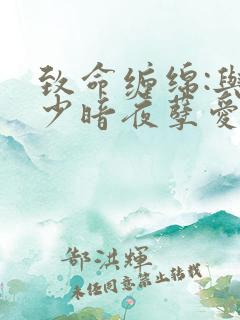 致命缠绵:與
少暗夜孽爱
郜洪輝
未经同意禁止转载